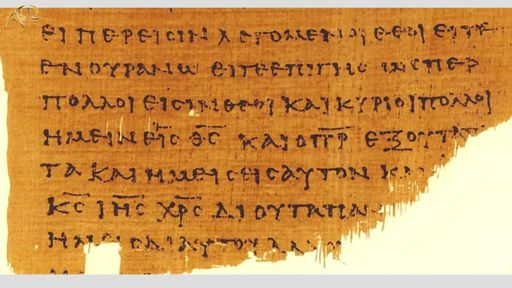 ΑΩ
ΕΙΠΕΡΕΙϹΙΝΛΕΓΟΜΕΝΟΙΘΕΟΙΕΙΤΕ
ΕΝΟΥΡΑΝΩΕΙΤΕΕΠΙΓΗϹΩϹΠΕΡ
ΠΟΛΛΟΙΕΙϹΙΝΘΕΟΙΚΑΙΚΥΡΙΟΙΠΟΛΛΟΙ
ΗΜΕΙΝΕΙϹ Θ̅Ϲ̅ ΚΑΙΟΠ̅Η̅Ρ̅ ΕΞΟΥΤΑ
ΤΑΚΑΙΗΜΕΙϹΕΙϹΑΥΤΟΝΚΑ
Κ̅Ϲ̅ Ι̅Η̅Ϲ̅ Χ̅Ρ̅Ϲ̅ ΔΙΟΥΤΑΠΑΝ